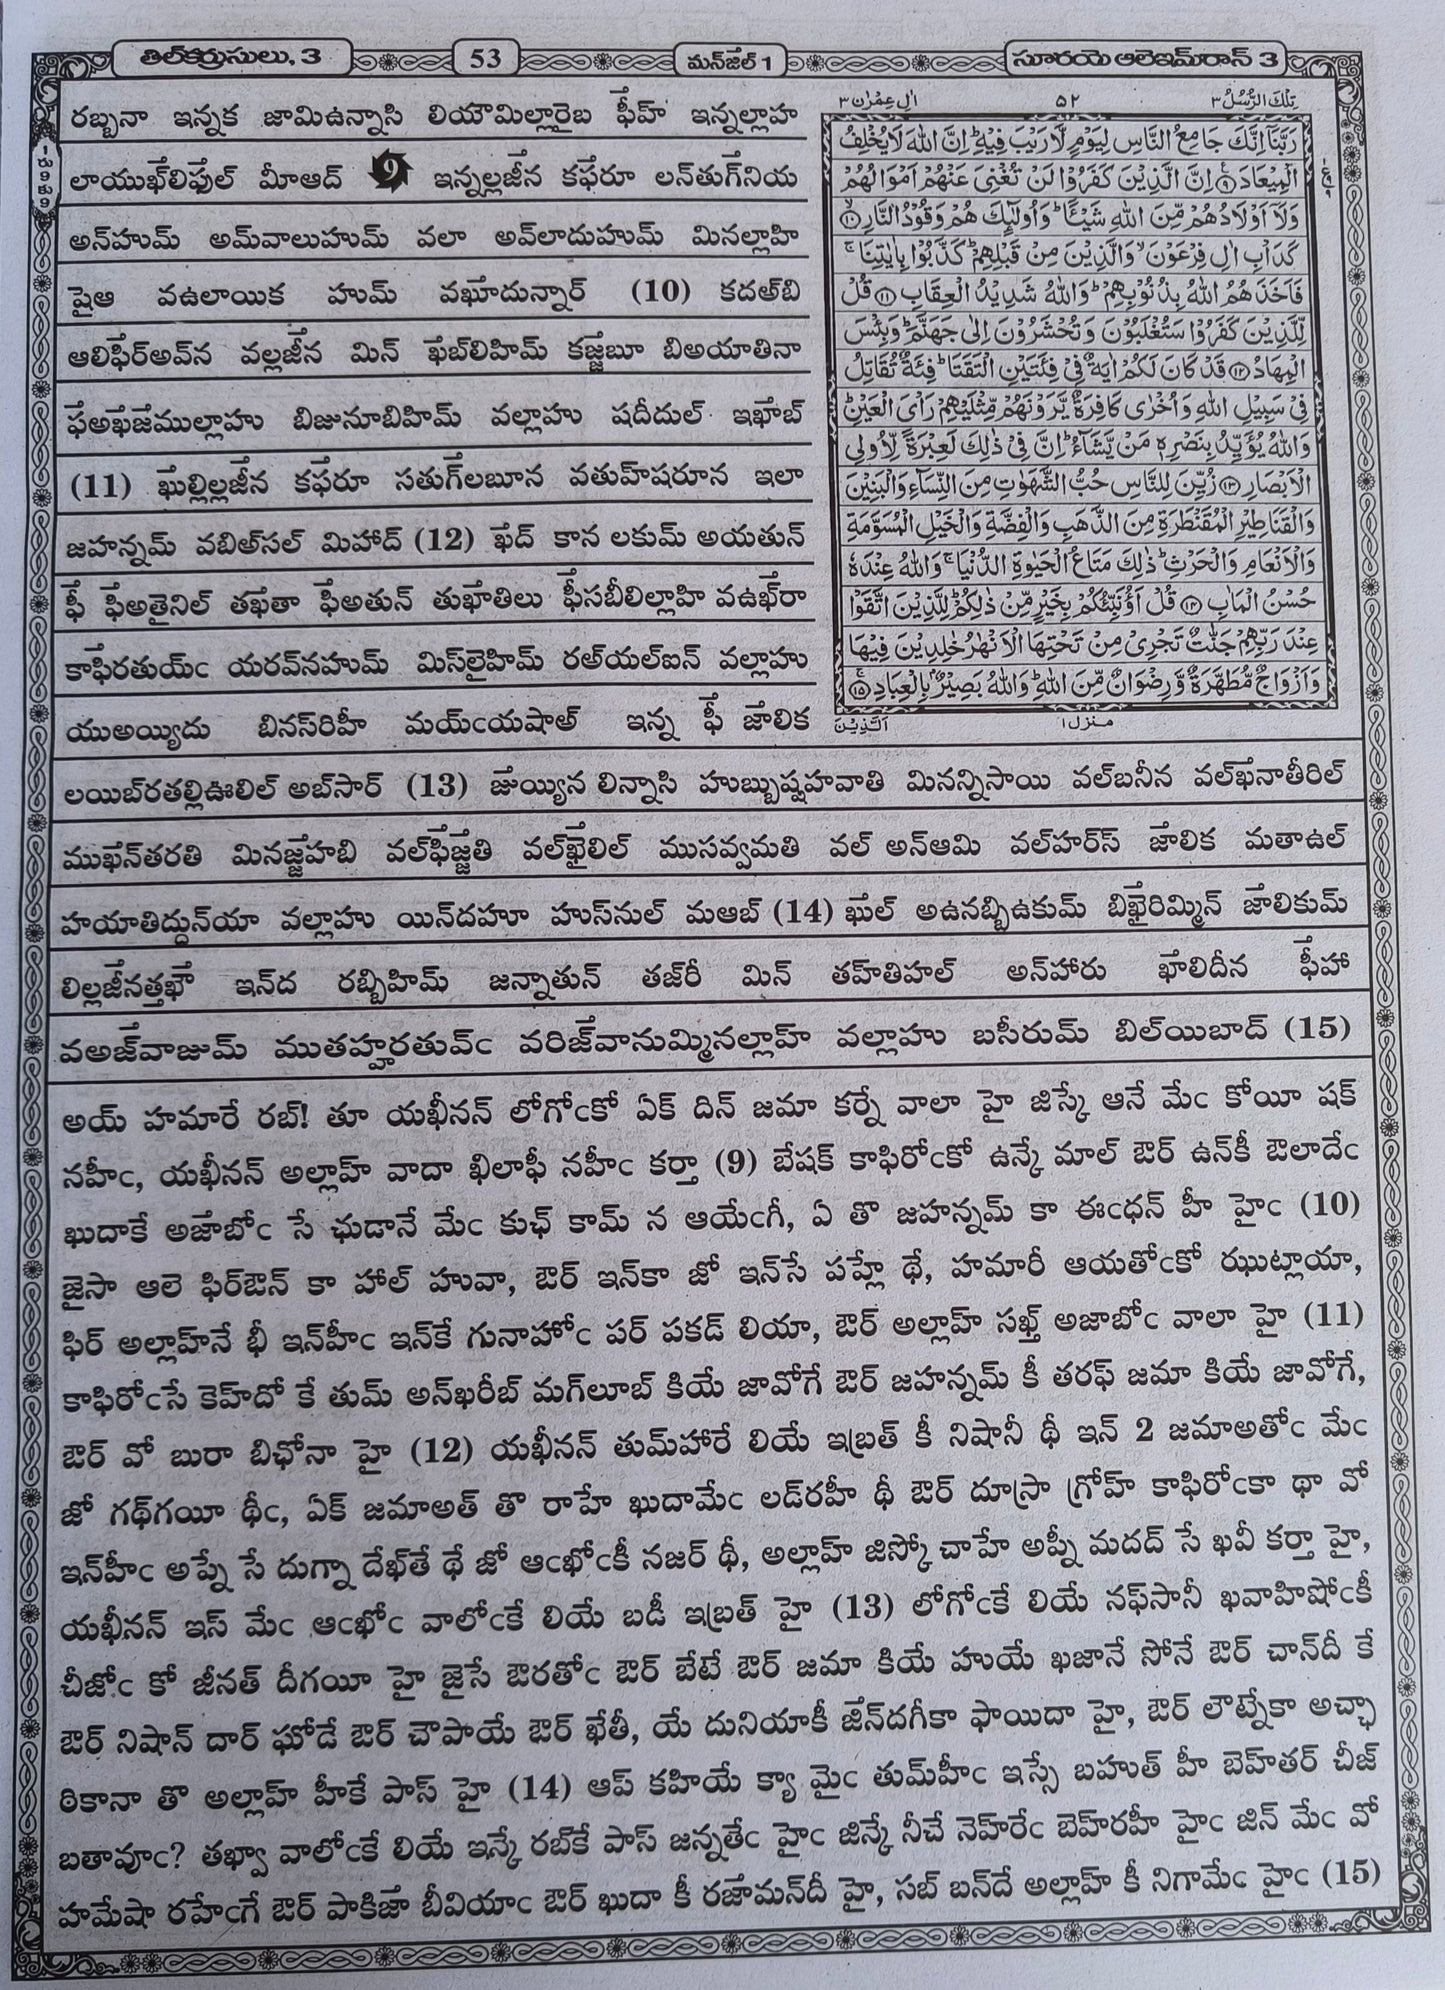 తిల్‌కర్రుసులు, 3
53
మన్‌జీల్ 1
సూరయె ఆలెఇమ్‌రాన్ 3
రబ్బనా ఇన్నక జామిఉన్నాసి లియౌమిల్లారైబ ఫీహ్ ఇన్నల్లాహ
లాయుఖ్‌లిఫుల్ మీఆద్ 9 ఇన్నల్లజీన కఫరూ లన్‌తుగ్‌నియ
అన్‌హుమ్ అమ్‌వాలుహుమ్ వలా అవ్‌లాదుహుమ్ మినల్లాహి
షైఆ వఉలాయిక హుమ్ వఖూదున్నార్ (10) కదఅ్‌బి
ఆలిఫిర్‌అవ్‌న వల్లజీన మిన్ ఖబ్‌లిహిమ్ కజ్జబూ బిఅయాతినా
ఫఅఖజముల్లాహు బిజునూబిహిమ్ వల్లాహు షదీదుల్ ఇఖాబ్
(11) ఖుల్లిల్లజీన కఫరూ సతుగ్‌లబూన వతుహ్‌షరూన ఇలా
జహన్నమ్ వబిఅ్‌సల్ మిహాద్ (12) ఖద్ కాన లకుమ్ అయతున్
ఫీ ఫిఅతైనిల్ తఖతా ఫిఅతున్ తుఖాతిలు ఫీసబీలిల్లాహి వఉఖ్‌రా
కాఫిరతుయ్ఁ యరవ్‌నహుమ్ మిస్‌లైహిమ్ రఅ్‌యల్‌ఐన్ వల్లాహు
యుఅయ్యిదు బినస్‌రిహీ మయ్ఁయషాఅ్ ఇన్న ఫీ జాలిక
లయిబ్‌రతల్లిఊలిల్ అబ్‌సార్ (13) జుయ్యిన లిన్నాసి హుబ్బుష్షహవాతి మినన్నిసాయి వల్‌బనీన వల్‌ఖనాతీరిల్
ముఖన్‌తరతి మినజ్జహబి వల్‌ఫిజ్జతి వల్‌ఖైలిల్ ముసవ్వమతి వల్ అన్‌ఆమి వల్‌హర్‌స్ జాలిక మతాఉల్
హయాతిద్దున్‌యా వల్లాహు యిన్‌దహూ హుస్‌నుల్ మఆబ్ (14) ఖుల్ అఉనబ్బిఉకుమ్ బిఖైరిమ్మిన్ జాలికుమ్
లిల్లజీనత్తఖౌ ఇన్‌ద రబ్బిహిమ్ జన్నాతున్ తజ్‌రీ మిన్ తహ్‌తిహల్ అన్‌హారు ఖాలిదీన ఫీహా
వఅజ్‌వాజుమ్ ముతహ్హరతువ్ఁ వరిజ్‌వానుమ్మినల్లాహ్ వల్లాహు బసీరుమ్ బిల్‌యిబాద్ (15)
تِلْكَ الرُّسُلُ ٣
٥٢
اٰلِ عِمْرٰن ٣
رَبَّنَاۤ اِنَّكَ جَامِعُ النَّاسِ لِيَوْمٍ لَّا رَيْبَ فِيْهِ ؕ اِنَّ اللّٰهَ لَا يُخْلِفُ
الْمِيْعَادَ ۩٩ اِنَّ الَّذِيْنَ كَفَرُوْا لَنْ تُغْنِيَ عَنْهُمْ اَمْوَالُهُمْ
وَلَاۤ اَوْلَادُهُمْ مِّنَ اللّٰهِ شَيْـًٔا ؕ وَاُولٰٓئِكَ هُمْ وَقُوْدُ النَّارِ ۙ١٠
كَدَاْبِ اٰلِ فِرْعَوْنَ ۙ وَالَّذِيْنَ مِنْ قَبْلِهِمْ ؕ كَذَّبُوْا بِاٰيٰتِنَا ۚ
فَاَخَذَهُمُ اللّٰهُ بِذُنُوْبِهِمْ ؕ وَاللّٰهُ شَدِيْدُ الْعِقَابِ ١١ قُلْ
لِّلَّذِيْنَ كَفَرُوْا سَتُغْلَبُوْنَ وَتُحْشَرُوْنَ اِلٰى جَهَنَّمَ ؕ وَبِئْسَ
الْمِهَادُ ١٢ قَدْ كَانَ لَكُمْ اٰيَةٌ فِيْ فِئَتَيْنِ الْتَقَتَا ؕ فِئَةٌ تُقَاتِلُ
فِيْ سَبِيْلِ اللّٰهِ وَاُخْرٰى كَافِرَةٌ يَّرَوْنَهُمْ مِّثْلَيْهِمْ رَاْيَ الْعَيْنِ ؕ
وَاللّٰهُ يُؤَيِّدُ بِنَصْرِهٖ مَنْ يَّشَآءُ ؕ اِنَّ فِيْ ذٰلِكَ لَعِبْرَةً لِّاُولِي
الْاَبْصَارِ ١٣ زُيِّنَ لِلنَّاسِ حُبُّ الشَّهَوٰتِ مِنَ النِّسَآءِ وَالْبَنِيْنَ
وَالْقَنَاطِيْرِ الْمُقَنْطَرَةِ مِنَ الذَّهَبِ وَالْفِضَّةِ وَالْخَيْلِ الْمُسَوَّمَةِ
وَالْاَنْعَامِ وَالْحَرْثِ ؕ ذٰلِكَ مَتَاعُ الْحَيٰوةِ الدُّنْيَا ۚ وَاللّٰهُ عِنْدَهٗ
حُسْنُ الْمَاٰبِ ١٤ قُلْ اَؤُنَبِّئُكُمْ بِخَيْرٍ مِّنْ ذٰلِكُمْ ؕ لِلَّذِيْنَ اتَّقَوْا
عِنْدَ رَبِّهِمْ جَنّٰتٌ تَجْرِيْ مِنْ تَحْتِهَا الْاَنْهٰرُ خٰلِدِيْنَ فِيْهَا
وَاَزْوَاجٌ مُّطَهَّرَةٌ وَّرِضْوَانٌ مِّنَ اللّٰهِ ؕ وَاللّٰهُ بَصِيْرٌۢ بِالْعِبَادِ ۚ١٥
منزل ١
اَلَّذِيْنَ
అయ్ హమారే రబ్! తూ యఖీనన్ లోగోఁకో ఏక్ దిన్ జమా కర్నే వాలా హై జిస్కే ఆనే మేఁ కోయీ షక్
నహీఁ, యఖీనన్ అల్లాహ్ వాదా ఖిలాఫీ నహీఁ కర్తా (9) బేషక్ కాఫిరోఁకో ఉన్కే మాల్ ఔర్ ఉన్‌కీ ఔలాదేఁ
ఖుదాకే అజాబోఁ సే ఛుడానే మేఁ కుఛ్ కామ్ న ఆయేఁగీ, ఏ తొ జహన్నమ్ కా ఈఁధన్ హీ హైఁ (10)
జైసా ఆలె ఫిర్‌ఔన్ కా హాల్ హువా, ఔర్ ఇన్‌కా జో ఇన్‌సే పహ్లే థే, హమారీ ఆయతోఁకో ఝుట్లాయా,
ఫిర్ అల్లాహ్‌నే భీ ఇన్‌హీఁ ఇన్‌కే గునాహోఁ పర్ పకడ్ లియా, ఔర్ అల్లాహ్ సఖ్త్ అజాబోఁ వాలా హై (11)
కాఫిరోఁసే కెహ్‌దో కే తుమ్ అన్‌ఖరీబ్ మగ్‌లూబ్ కియే జావోగే ఔర్ జహన్నమ్ కీ తరఫ్ జమా కియే జావోగే,
ఔర్ వో బురా బిఛోనా హై (12) యఖీనన్ తుమ్‌హారే లియే ఇబ్రత్ కీ నిషానీ థీ ఇన్ 2 జమాఅతోఁ మేఁ
జో గథ్‌గయీ థీఁ, ఏక్ జమాఅత్ తొ రాహే ఖుదామేఁ లడ్‌రహీ థీ ఔర్ దూస్రా గ్రోహ్ కాఫిరోఁకా థా వో
ఇన్‌హీఁ అప్నే సే దుగ్నా దేఖ్‌తే థే జో ఆఁఖోఁకీ నజర్ థీ, అల్లాహ్ జిస్కో చాహే అప్నీ మదద్ సే ఖవీ కర్తా హై,
యఖీనన్ ఇస్ మేఁ ఆఁఖోఁ వాలోఁకే లియే బడీ ఇబ్రత్ హై (13) లోగోఁకే లియే నఫ్‌సానీ ఖవాహిషోఁకీ
చీజోఁ కో జీనత్ దీగయీ హై జైసే ఔరతోఁ ఔర్ బేటే ఔర్ జమా కియే హుయే ఖజానే సోనే ఔర్ చాన్‌దీ కే
ఔర్ నిషాన్ దార్ ఘోడే ఔర్ చౌపాయే ఔర్ ఖేతీ, యే దునియాకీ జిన్‌దగీకా ఫాయిదా హై, ఔర్ లౌట్నేకా అచ్ఛా
ఠికానా తొ అల్లాహ్ హీకే పాస్ హై (14) ఆప్ కహియే క్యా మైఁ తుమ్‌హీఁ ఇస్సే బహుత్ హీ బెహ్‌తర్ చీజ్
బతావూఁ? తఖ్వా వాలోఁకే లియే ఇన్కే రబ్‌కే పాస్ జన్నతేఁ హైఁ జిన్కే నీచే నెహ్‌రేఁ బెహ్‌రహీ హైఁ జిన్ మేఁ వో
హమేషా రహేఁగే ఔర్ పాకిజా బీవియాఁ ఔర్ ఖుదా కీ రజామన్‌దీ హై, సబ్ బన్‌దే అల్లాహ్ కీ నిగామేఁ హైఁ (15)